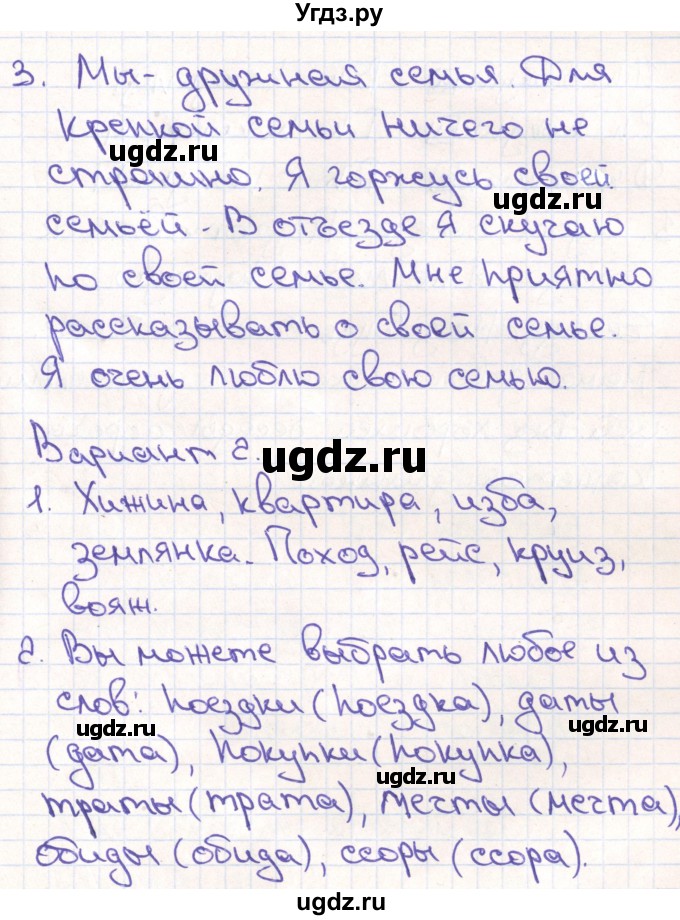 Угдз.ру
3. Мы - дружная семья. Для
крепкой семьи ничего не
ugdz.ru
страшно. Я горжусь своей
ugdz.ru
семьёй - В отъезде я скучаю
по своей семье. Мне приятно
ugdz.ru
рассказывать о своей семье.
Я очень люблю свою семью.
Вариант 2.
ugdz.ru
1. Хижина, квартира, изба,
землянка. Поход, рейс, круиз,
вояж.
2. Вы можете выбрать любое из
слов: поездки (поездка), даты
ugdz.ru
ugdz.ru
(дата), покупки (покупка),
ugdz.ru
траты (трата), мечты (мечта),
обиды (обида), ссоры (ссора).
ugdz.ru